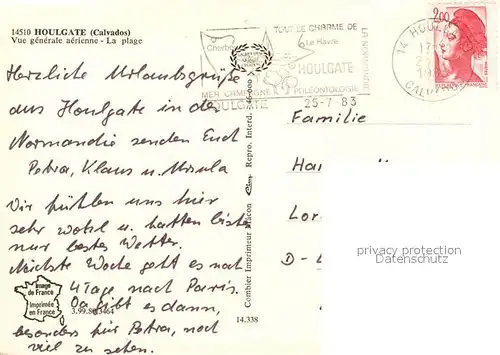 14510 HOULGATE (Calvados)
Vue générale aérienne - La plage
Herzliche Urlaubsgrüße
aus Houlgate in der
Normandie senden Euch
Petra, Klaus u. Ursula
Wir fühlen uns hier
sehr wohl u. hatten bisher
nur bestes Wetter.
Nächste Woche geht es noch
4 Tage nach Paris.
Da gibt es dann,
besonders für Petra, noch
viel zu sehen.
Image
de France
Imprimée
en France
3.99.80.3464
14.338
Combier Imprimeur Macon
Repro. Interd.
TOUT LE CHARME DE
LA NORMANDIE
Cherbourg
Le Havre
HOULGATE
MER CAMPAGNE PALÉONTOLOGIE
HOULGATE
25-7 83
14 HOULGATE
CALVADOS
2,00
Familie
Ha
Lor
D-
privacy protection
for customers